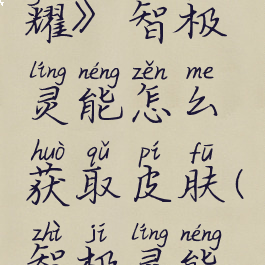 耀》智极
líng néng zěn me
灵能怎么
huò qǔ pí fū
获取皮肤(
zhì jí líng néng
智极灵能